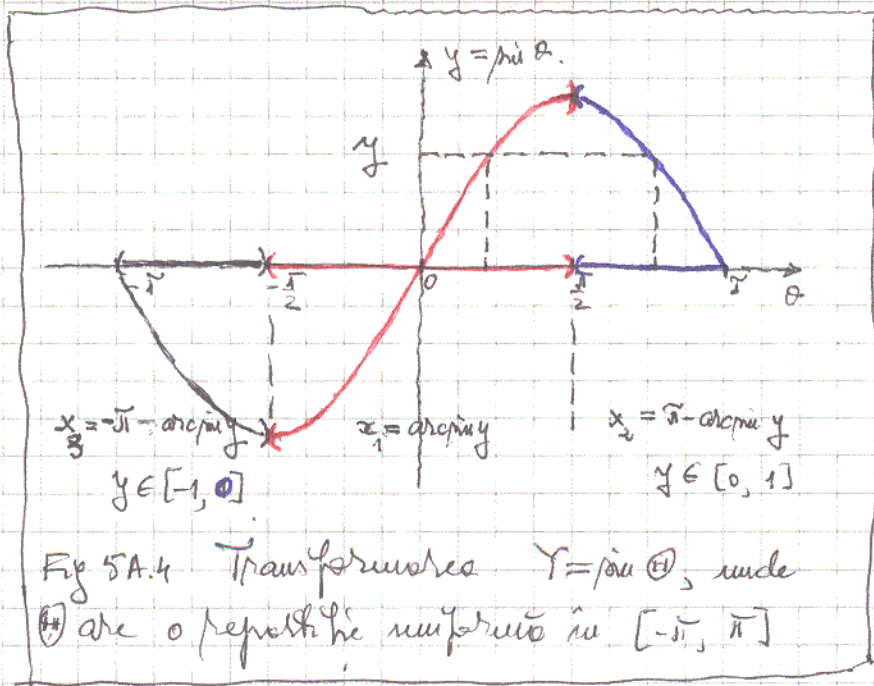 y = sin θ.
y
-π
-π/2
0
π/2
π
θ
x₃ = -π - arcsin y
y ∈ [-1, 0]
x₁ = arcsin y
x₂ = π - arcsin y
y ∈ [0, 1]
Fig 5A.4 Transformarea Y = sin Θ, unde
Θ are o repartiție uniformă în [-π, π]